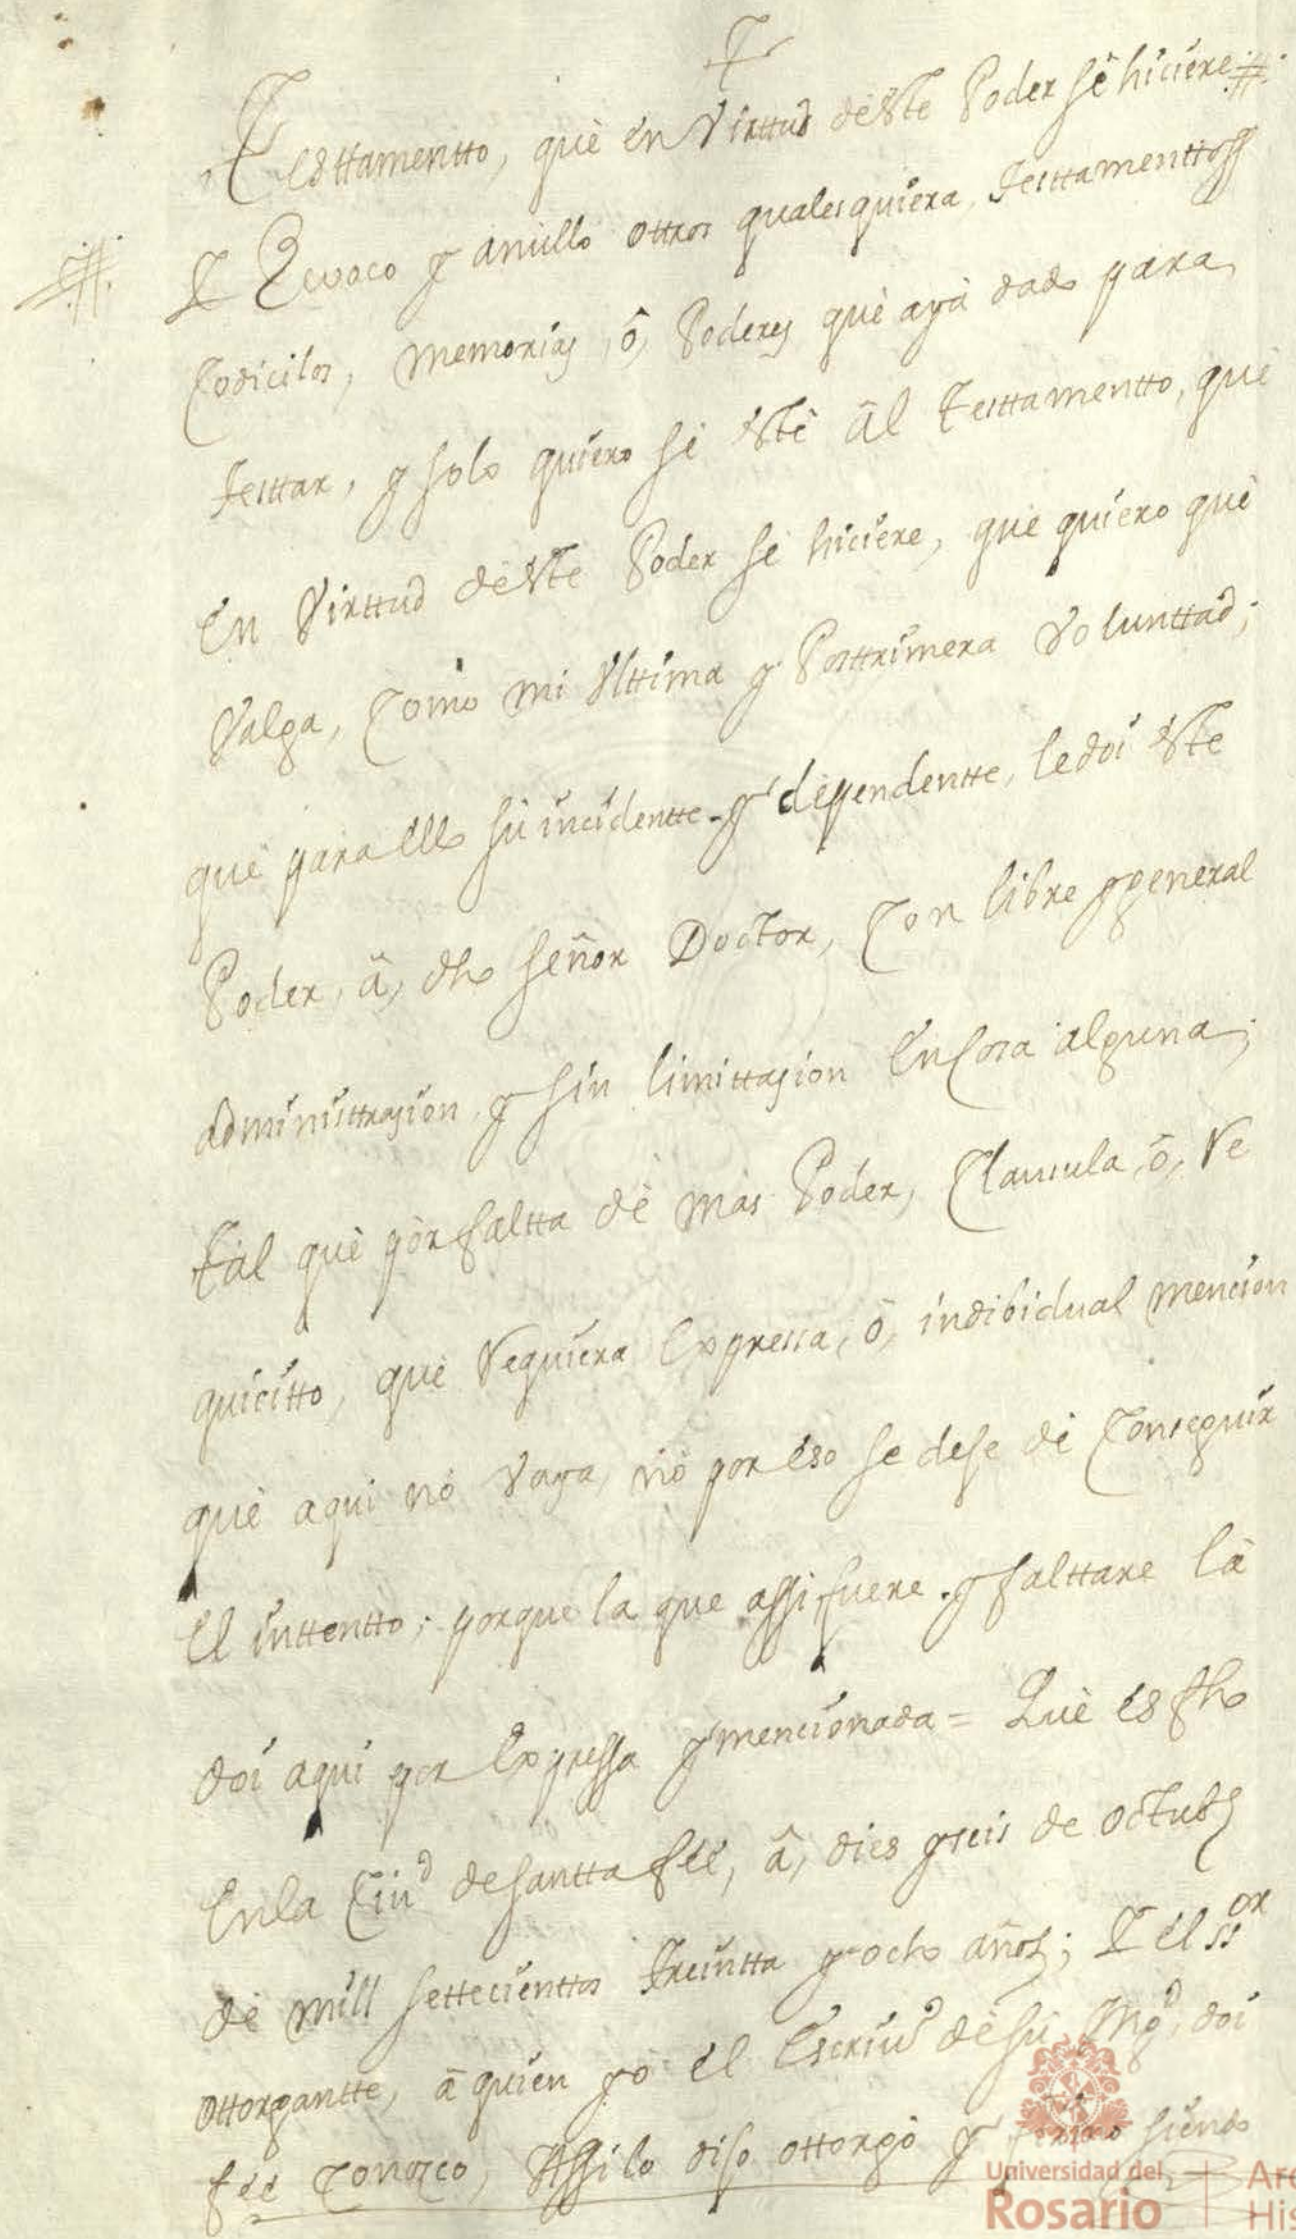 Testtamentto, què en Virttud dèste Poder sè hiciere #
Y Revoco y anullo ottros qualesquiera, testtamenttoss
Codicilos, memorias, ô, Poderes què ayà dado para
testtar, y solo quiero sè estè âl testtamentto, què
en Virttud dèste Poder sè hiciere, que quiero què
Valga, Como mi Ulttima y Posttrimera Volunttad;
què para ello sù incidentte y dèpendentte, le doi este
Poder, â, dho señor Doctor, Con libre y general
administtrasion, y sin limittasion en Cosa alguna;
tal què pòr faltta dè mas Poder, Clausula, ô, Re
quicitto, què Requiera expressa, ô, indibidual mencion
què aqui nò Vaya, nò por eso se dese dè Conseguir
el inttentto; porque la que assi fuere y falttare la
doi aqui por expressa y mencionada = Què es fho
en la Ciud de santta feè, â, dies y seis de octubr
dè mill settecienttos treintta y ocho años; Y el ssor
ottorgantte, â quien yo el Escriuo dè sù Mgd, doi
feè Conozco, Assi lo diso ottorgò y firmo siendo
Universidad del
Rosario